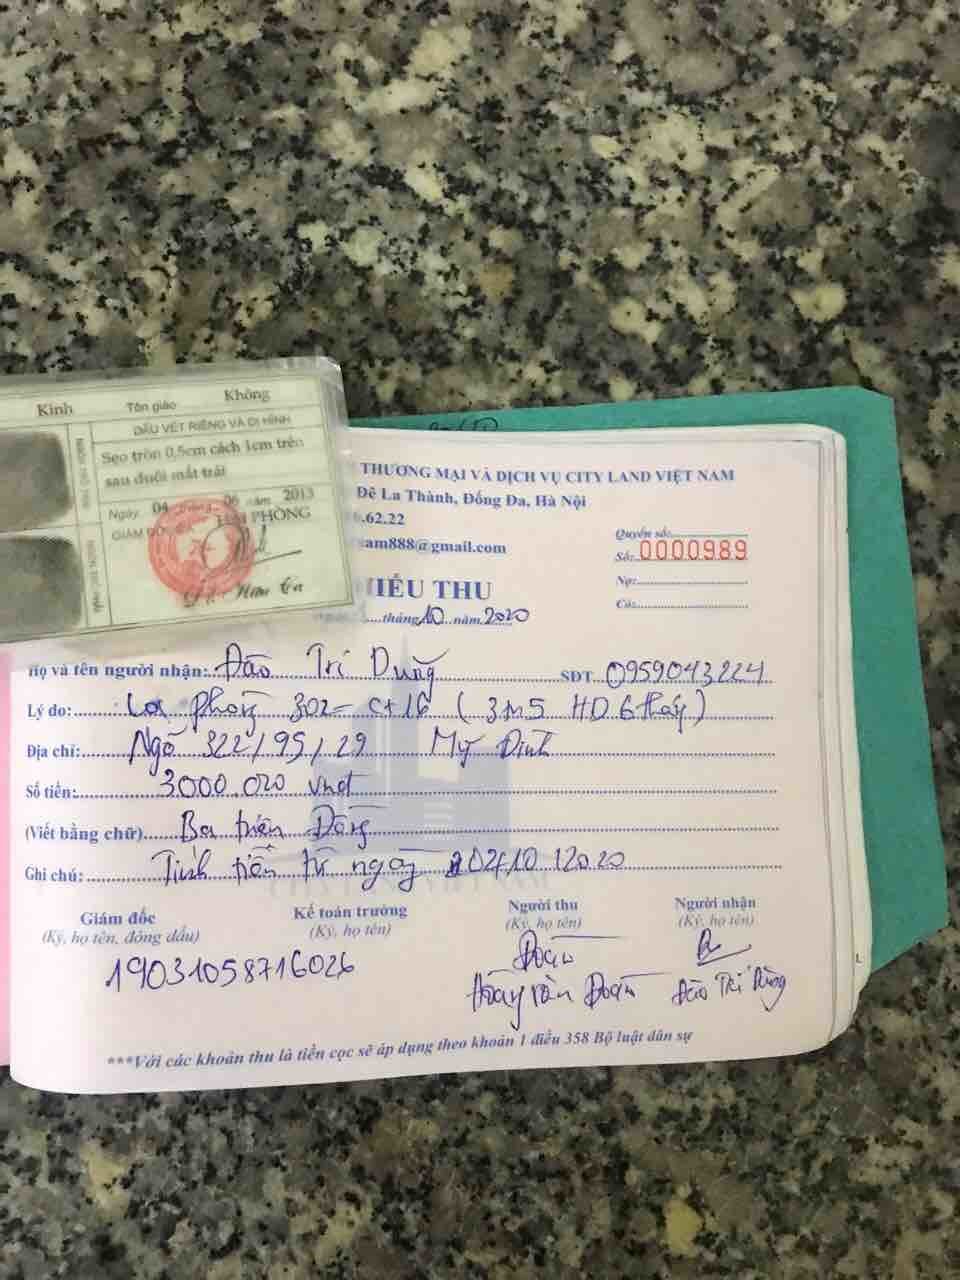 Kinh Tôn giáo Không
DẤU VẾT RIÊNG VÀ DỊ HÌNH
Sẹo tròn 0,5cm cách 1cm trên
sau đuôi mắt trái
Ngày 04 tháng 06 năm 2013
GIÁM ĐỐC PHÒNG
THƯƠNG MẠI VÀ DỊCH VỤ CITY LAND VIỆT NAM
Đê La Thành, Đống Đa, Hà Nội
.62.22
am888@gmail.com
Quyển số:
Số: 0000989
Nợ:
Có:
HIẾU THU
tháng 10 năm 2020
Họ và tên người nhận: Đào Trí Dũng SĐT 0959043224
Lý do: Cọc phòng 302 - C+16 (3tr5 HD 6 tháng)
Địa chỉ: Ngõ 322/95/29 Mỹ Đình
Số tiền: 3000.000 vnđ
(Viết bằng chữ) Ba triệu Đồng
Ghi chú: Tính tiền từ ngày
CITY LAND VIỆT NAM
Giám đốc Kế toán trưởng Người thu Người nhận
(Ký, họ tên, đóng dấu) (Ký, họ tên) (Ký, họ tên) (Ký, họ tên)
19031058716026
Đoàn
Văn Đoàn Đào Trí Dũng
***Với các khoản thu là tiền cọc sẽ áp dụng theo khoản 1 điều 358 Bộ luật dân sự